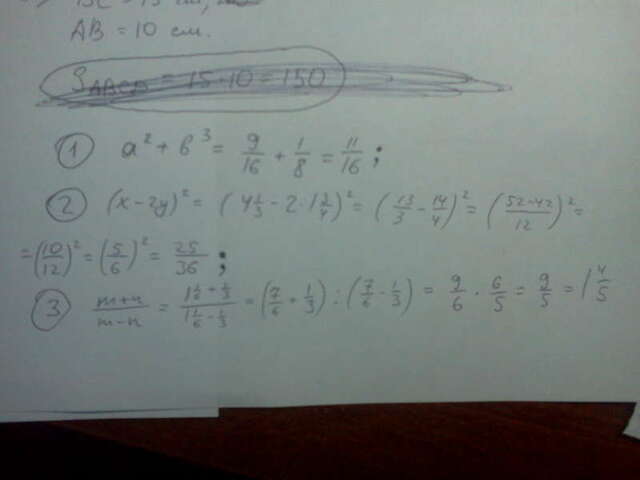 BC = 15 см,
AB = 10 см.
S ABCD = 15·10 = 150
① a² + b³ = 9/16 + 1/8 = 11/16 ;
② (x − 2y)² = ( 4 1/3 − 2·1 3/4 )² = ( 13/3 − 14/4 )² = ( 52−42/12 )² =
= (10/12)² = (5/6)² = 25/36 ;
③ m+n/m−n = 1 1/6 + 1/3 / 1 1/6 − 1/3 = (7/6 + 1/3) : (7/6 − 1/3) = 9/6 · 6/5 = 9/5 = 1 4/5